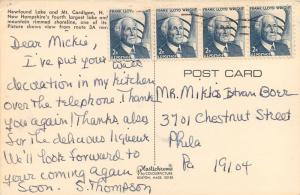 Newfound Lake and Mt. Cardigan, N. H.
New Hampshire's fourth largest lake and
mountain rimmed shoreline, one of its
Picture above view from route 3A near
FRANK LLOYD WRIGHT FRANK LLOYD WRIGHT FRANK LLOYD WRIGHT FRANK LLOYD WRIGHT
2c U.S. POSTAGE 2c U.S. POSTAGE 2c U.S. POSTAGE 2c U.S. POSTAGE
Dear Mickis,
I put your wall
decoration in my kitchen
over the telephone Thank
you again! Thanks also
for the delicious liqueur
We'll look forward to
your coming again
Soon. S. Thompson
POST CARD
Mr. Mikis Borr
3701 Chestnut Street
Phila
Pa 19104
Plastichrome
BY COLOURPICTURE
BOSTON, MASS. 02130